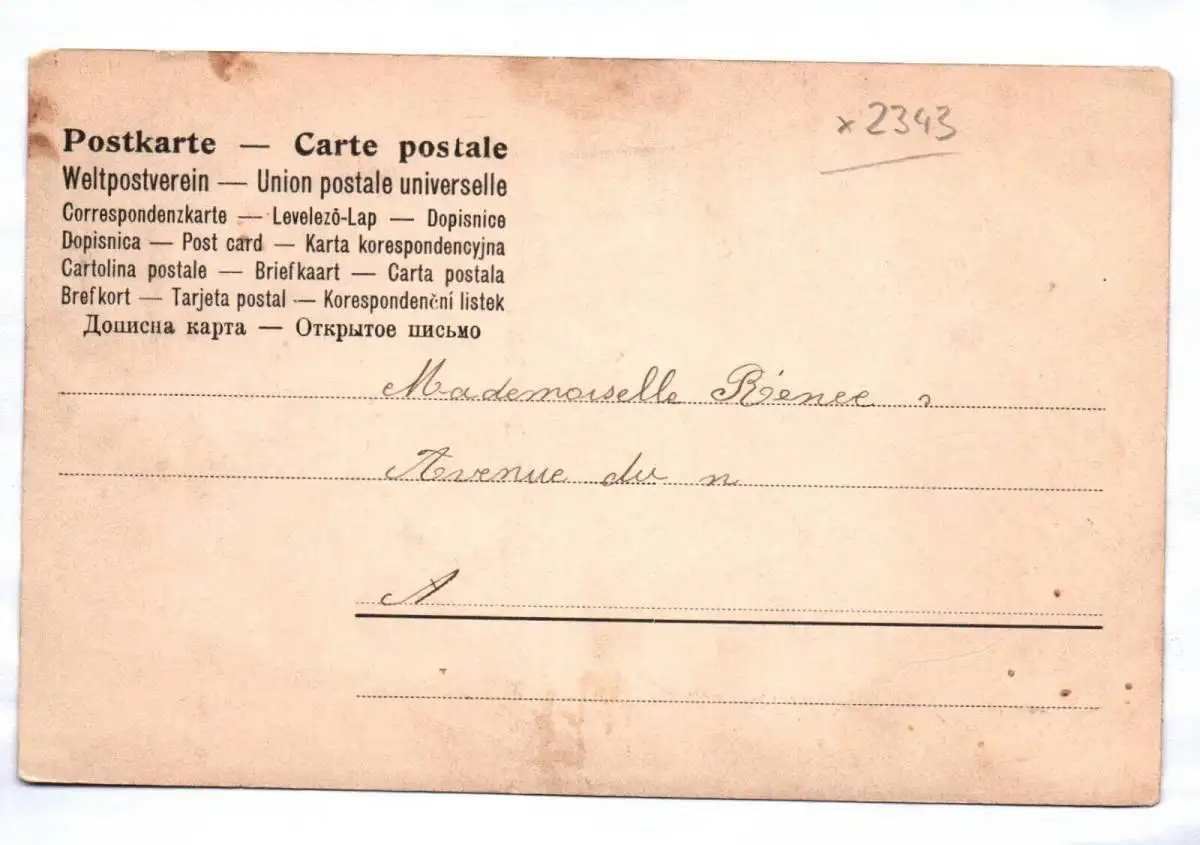 x 2343
Postkarte — Carte postale
Weltpostverein — Union postale universelle
Correspondenzkarte — Levelező-Lap — Dopisnice
Dopisnica — Post card — Karta korespondencyjna
Cartolina postale — Briefkaart — Carta postala
Brefkort — Tarjeta postal — Korespondenční listek
Дописна карта — Открытое письмо
Mademoiselle Rénee
Avenue du n
A